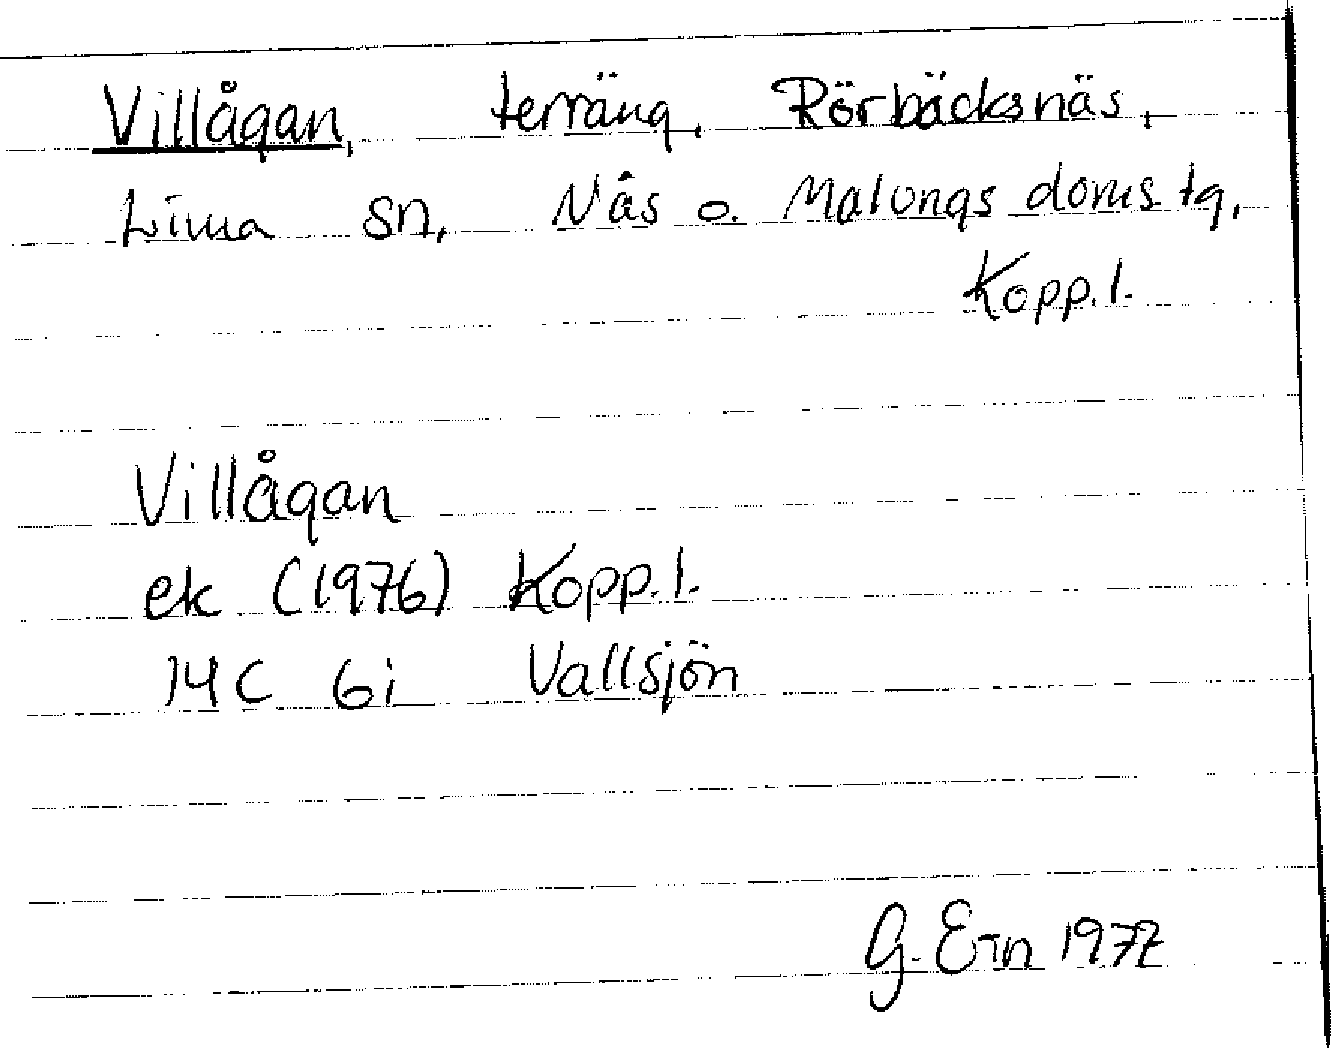 Villågan, terräng, Rörbäcksnäs,
Lima sn, Nås o. Malungs doms.tg,
Kopp.l.
Villågan
ek (1976) Kopp.l.
14C 6i Vallsjön
G. Ern 1977